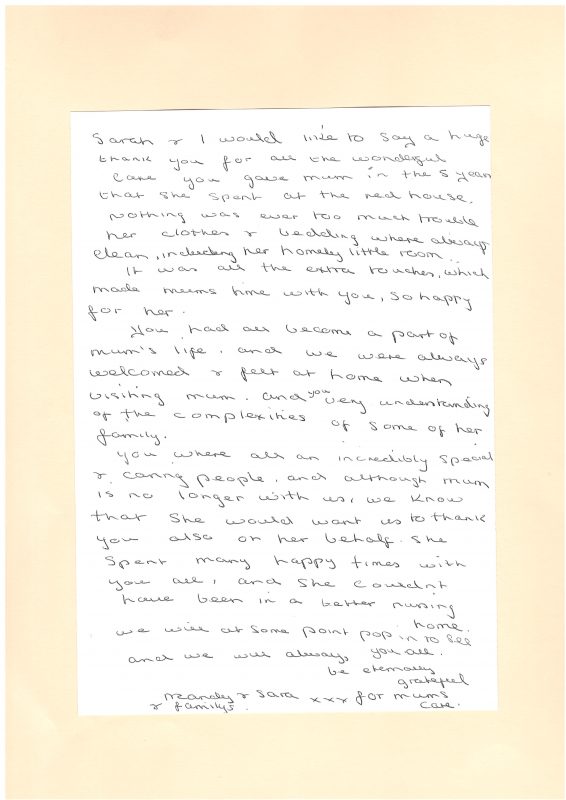 Sarah & I would like to say a huge
thank you for all the wonderful
care you gave mum in the 5 years
that she spent at the red house.
Nothing was ever too much trouble
her clothes & bedding where always
clean, including her homely little room..
It was all the extra touches, which
made mums time with you, so happy
for her.
You had all become a part of
mum's life. and we were always
welcomed & felt at home when
visiting mum. and you very understanding
of the complexities of some of her
family.
you where all an incredibly special
& caring people. and although mum
is no longer with us, we know
that she would want us to thank
you also on her behalf. she
spent many happy times with
you all, and she couldn't
have been in a better nursing
home.
we will at some point pop in to see
you all.
and we will always
be eternally
grateful
for mums
care.
Mandy & Sara xxx
& family's.